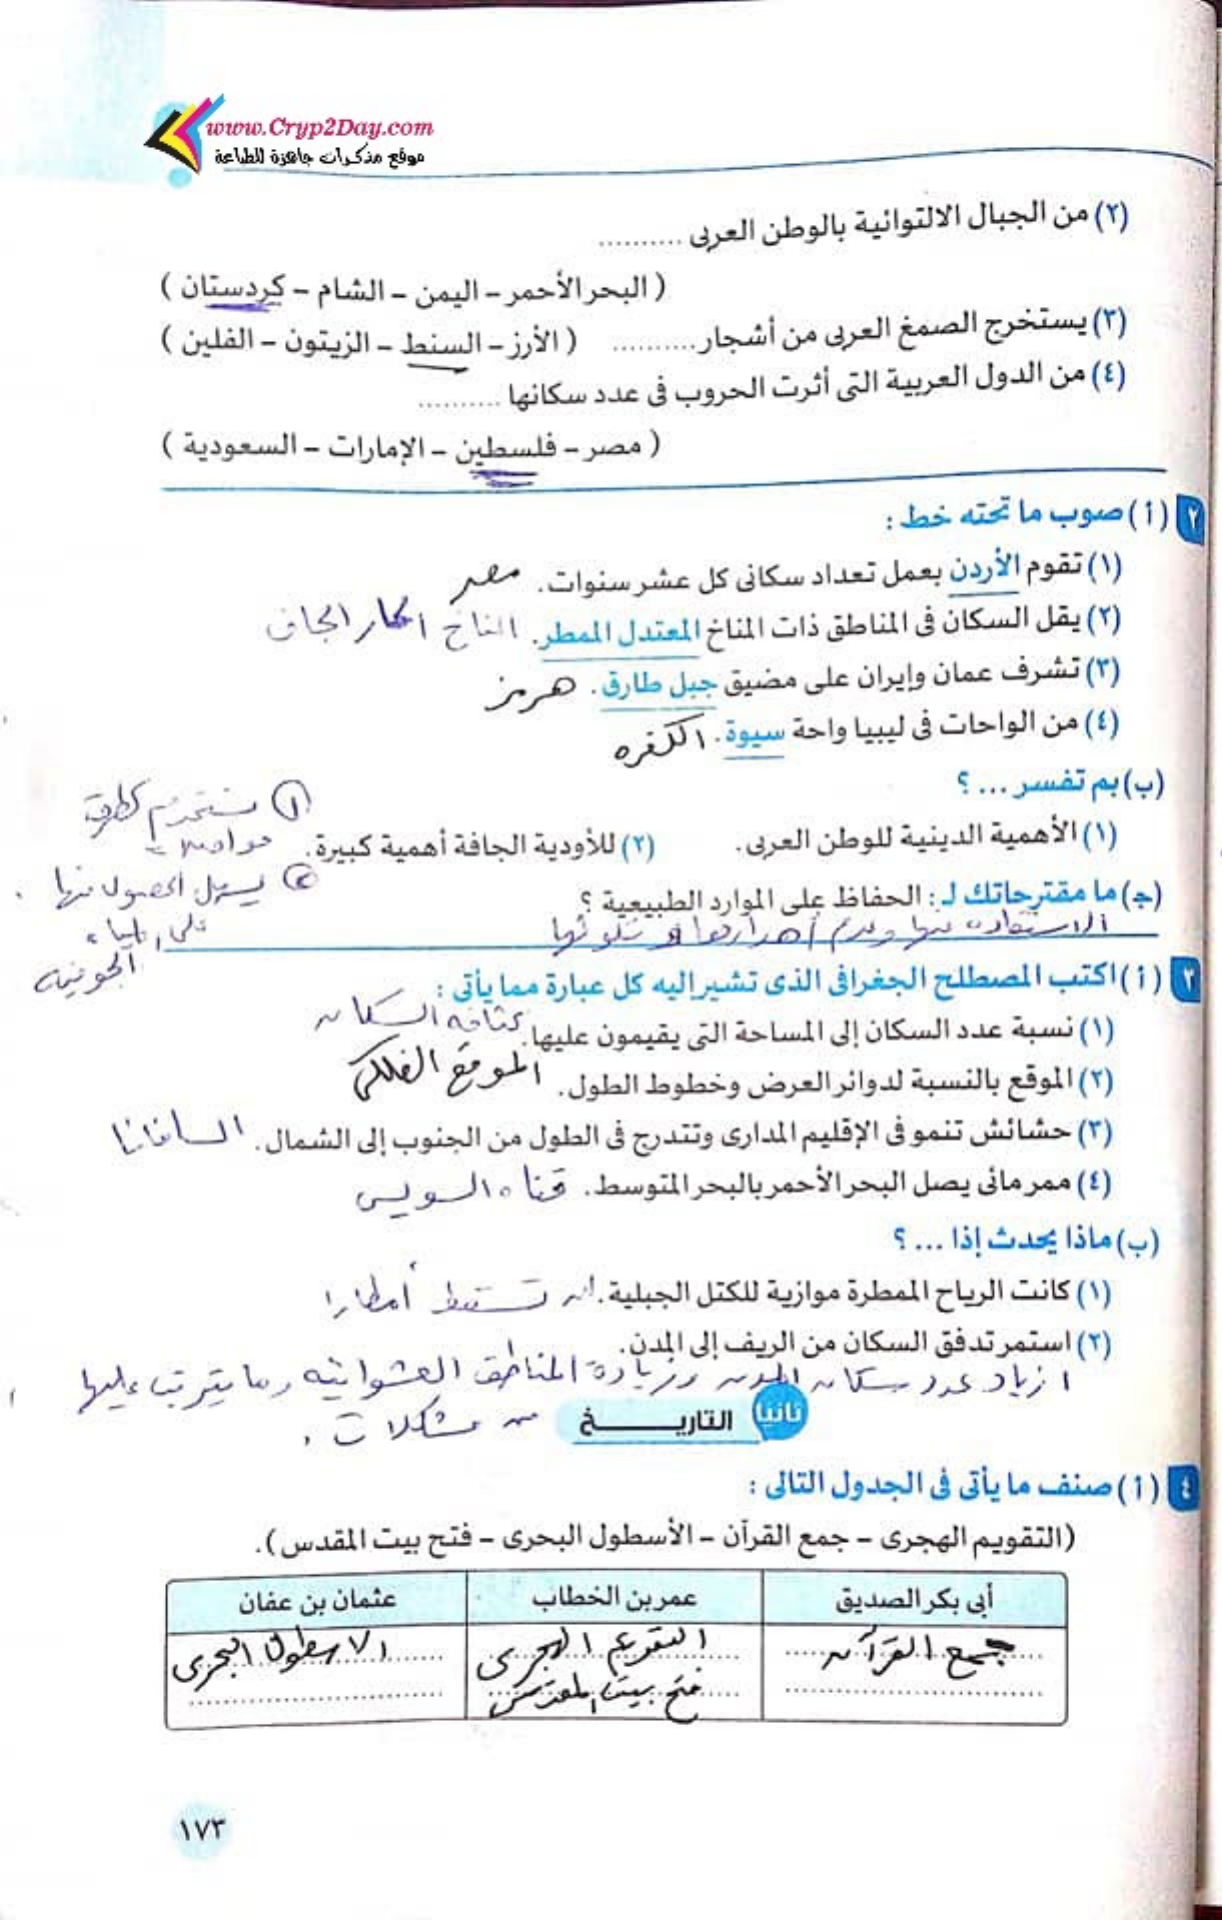 www.Cryp2Day.com
موقع مذكرات جاهزة للطباعة
(٢) من الجبال الالتوائية بالوطن العربى ..........
( البحر الأحمر – اليمن – الشام – كردستان )
(٣) يستخرج الصمغ العربى من أشجار .......... ( الأرز – السنط – الزيتون – الفلين )
(٤) من الدول العربية التى أثرت الحروب فى عدد سكانها ..........
( مصر – فلسطين – الإمارات – السعودية )
٢ (أ) صوب ما تحته خط :
(١) تقوم الأردن بعمل تعداد سكانى كل عشر سنوات. مصر
(٢) يقل السكان فى المناطق ذات المناخ المعتدل الممطر. المناخ الحار الجاف
(٣) تشرف عمان وإيران على مضيق جبل طارق. هرمز
(٤) من الواحات فى ليبيا واحة سيوة. الكفره
(ب) بم تفسر ... ؟
(١) الأهمية الدينية للوطن العربى. (٢) للأودية الجافة أهمية كبيرة.
① تستخدم كطرق
مواصلات
② يسهل الحصول منها
على المياه
الجوفيه
(ج) ما مقترحاتك لـ : الحفاظ على الموارد الطبيعية ؟
الاستفادة منها وعدم اهدارها او تلوثها
٣ (أ) اكتب المصطلح الجغرافى الذى تشير إليه كل عبارة مما يأتى :
(١) نسبة عدد السكان إلى المساحة التى يقيمون عليها. كثافه السكان
(٢) الموقع بالنسبة لدوائر العرض وخطوط الطول. الموقع الفلكى
(٣) حشائش تنمو فى الإقليم المدارى وتتدرج فى الطول من الجنوب إلى الشمال. السافانا
(٤) ممر مائى يصل البحر الأحمر بالبحر المتوسط. قناه السويس
(ب) ماذا يحدث إذا ... ؟
(١) كانت الرياح الممطرة موازية للكتل الجبلية. لن تسقط أمطارا
(٢) استمر تدفق السكان من الريف إلى المدن.
ازياد عدد سكان المدن وزيادة المناطق العشوائيه وما يترتب عليها
من مشكلات .
ثانيا التاريـــــــخ
٤ (أ) صنف ما يأتى فى الجدول التالى :
(التقويم الهجرى – جمع القرآن – الأسطول البحرى – فتح بيت المقدس).
أبى بكر الصديق عمر بن الخطاب عثمان بن عفان
جمع القرآن التقويم الهجرى الاسطول البحرى
فتح بيت المقدس
١٧٣